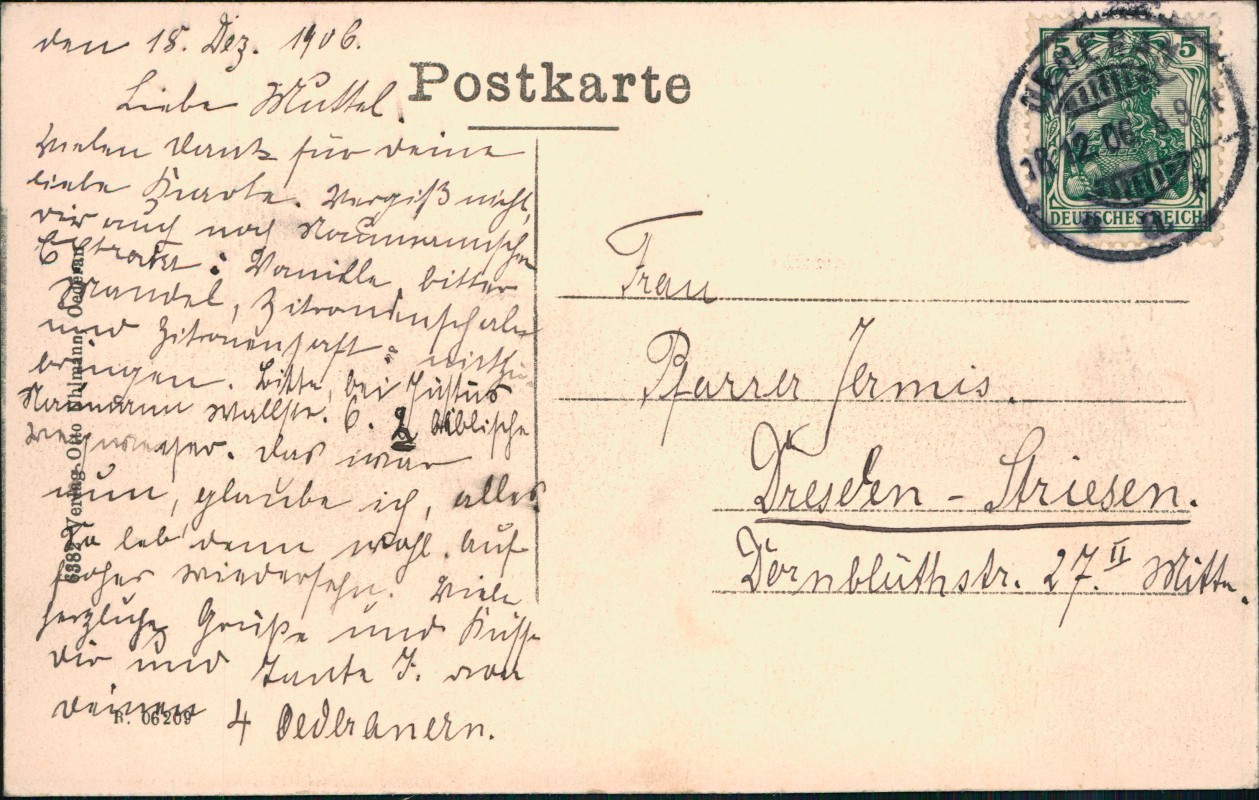 den 18. Dez. 1906.
Liebe Muttel.
Vielen Dank für deine
liebe Karte. Vergiß nicht,
dir auch noch Naumannsche
Extrakte: Vanille, bitter
Mandel, Zitronenschale
und Zitronensaft mit zu
bringen. Bitte, bei Justus
Naumann Wallstr. 6. 2 biblische
Wegweiser. Das wär
nun, glaube ich, alles.
So leb' denn wohl. Auf
frohes Wiedersehn. Viele
herzliche Grüße und Küsse
dir und Tante J. von
deinen 4 Oederanern.
Postkarte
5 5
OEDERAN
18.12.06. 8-9
DEUTSCHES REICH
Frau
Pfarrer Jermis.
Dresden - Striesen.
Dornblüthstr. 27. II Mitte.
6382 Verlag Otto Uhlmann, Oederan
R. 06209